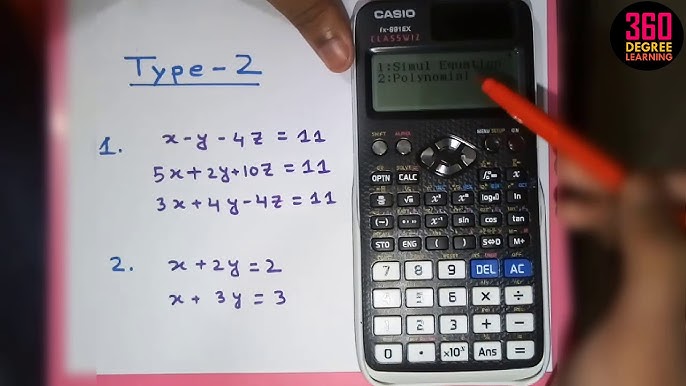 Type-2
1. x-y-4z=11
5x+2y+10z=11
3x+4y-4z=11
2. x+2y=2
x+3y=3
CASIO
fx-991EX
CLASSWIZ
1:Simul Equation
2:Polynomial
SHIFT ALPHA MENU SETUP ON
OPTN CALC
SOLVE
log x
sin cos tan
STO ENG ( ) S⇔D M+
7 8 9 DEL AC
4 5 6 × ÷
1 2 3 + −
0 . ×10ˣ Ans =
360
DEGREE
LEARNING